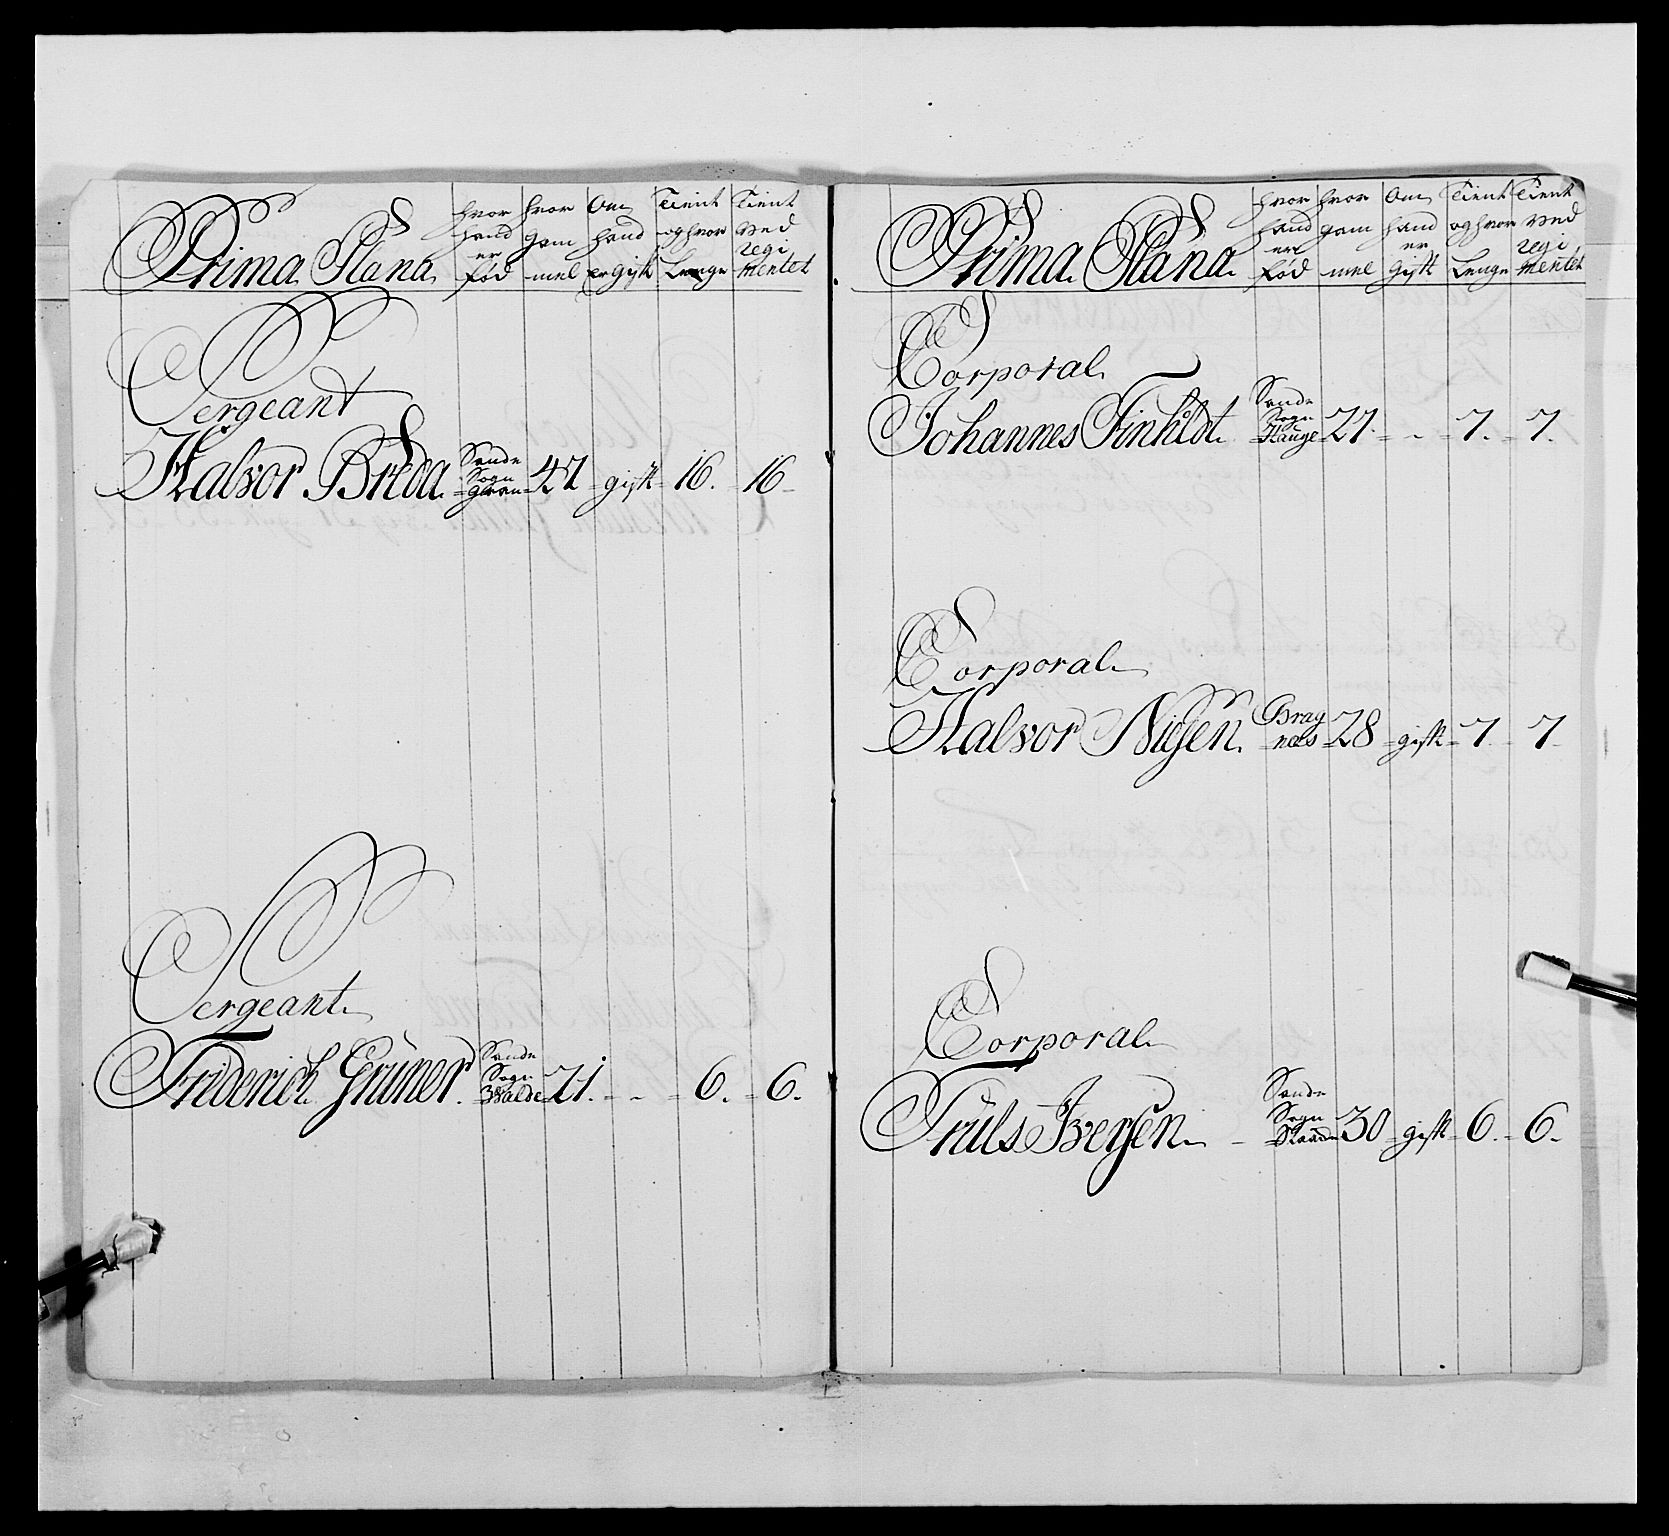 Prima Plana
hvor hand er fød
hvor gam mel
Om hand er gift
Tient og hvor Lenge
Tient ved regi mentet
Sergeant
Halvor Breda. Sande Sogn 47 gift 16. 16
Sergeant
Friderich Grüner. Sande Sogn 21. - - 6. 6.
Prima Plana
hvor hand er fød
hvor gam mel
Om hand er gift
Tient og hvor Lenge
Tient ved regi mentet
Corporal
Johannes Finhildt Sande Sogn Hauge 27. - - 7. 7.
Corporal
Halvor Nielsen. Brag næs 28 gift 7. 7
Corporal
Truls Iversen Sande Sogn 30 gift 6. 6.